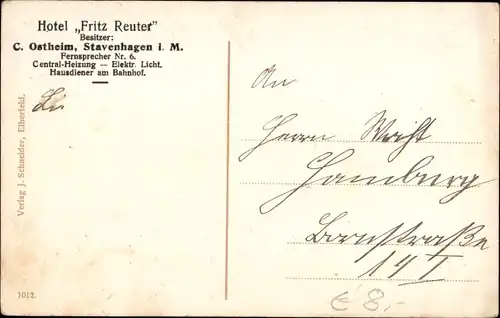 Hotel „Fritz Reuter"
Besitzer:
C. Ostheim, Stavenhagen i. M.
Fernsprecher Nr. 6.
Central-Heizung — Elektr. Licht.
Hausdiener am Bahnhof.
Verlag J. Schneider, Elberfeld.
1012.
An
Herrn
Hamburg
Bornstraße
14 I
€ 8,-